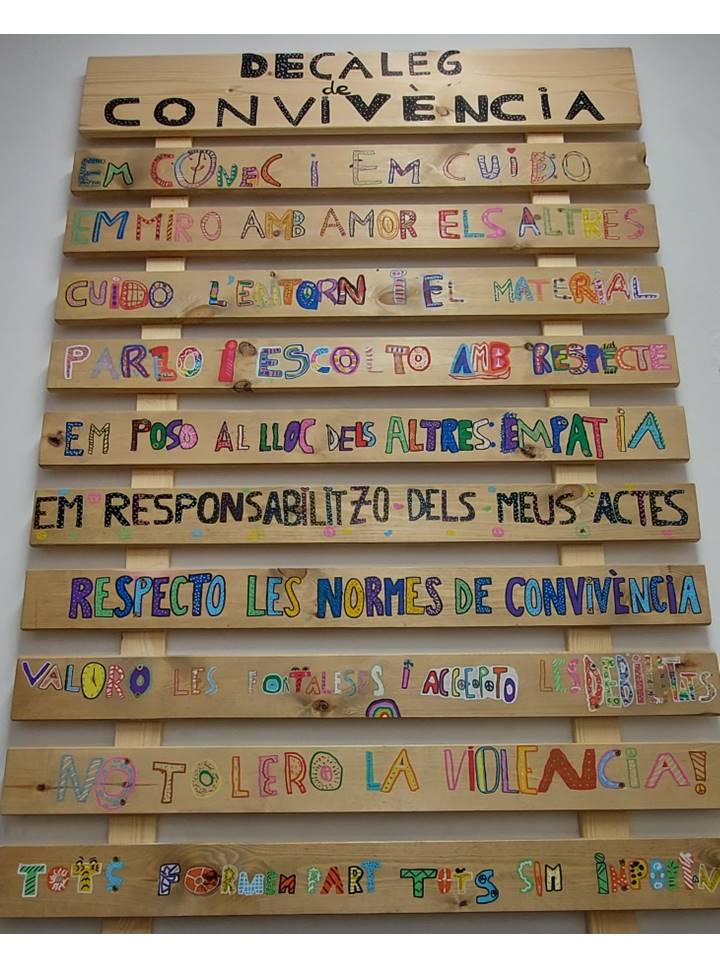 DECÀLEG
de
CONVIVÈNCIA
EM CONEC i EM CUiDO
EM MIRO AMB AMOR ELS ALTRES
CUiDO L'ENTORN i EL MATERIAL
PARLO i ESCOLTO AMB RESPECTE
EM POSO AL LLOC DELS ALTRES: EMPATiA
EM RESPONSABiLiTZO DELS MEUS ACTES
RESPECTO LES NORMES DE CONViVÈNCiA
VALORO LES FORTALESES i ACCEPTO LES DEBiLiTATS
NO TOLERO LA ViOLENCiA!
TOTS FORMEM PART TOTS SIM